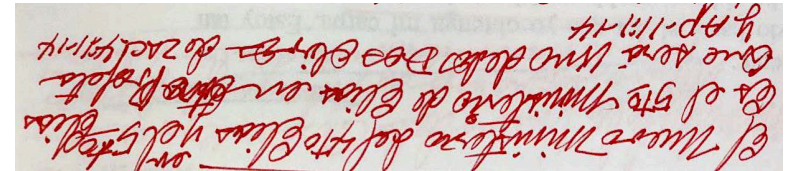 El Nuevo Ministerio del 4to Elias y el 5to Elias
es el 5to Ministerio de Elias en otro Profeta
Que será Uno de los Dos Olivos - de Zac[4:1-14
y Ap-11:1-14